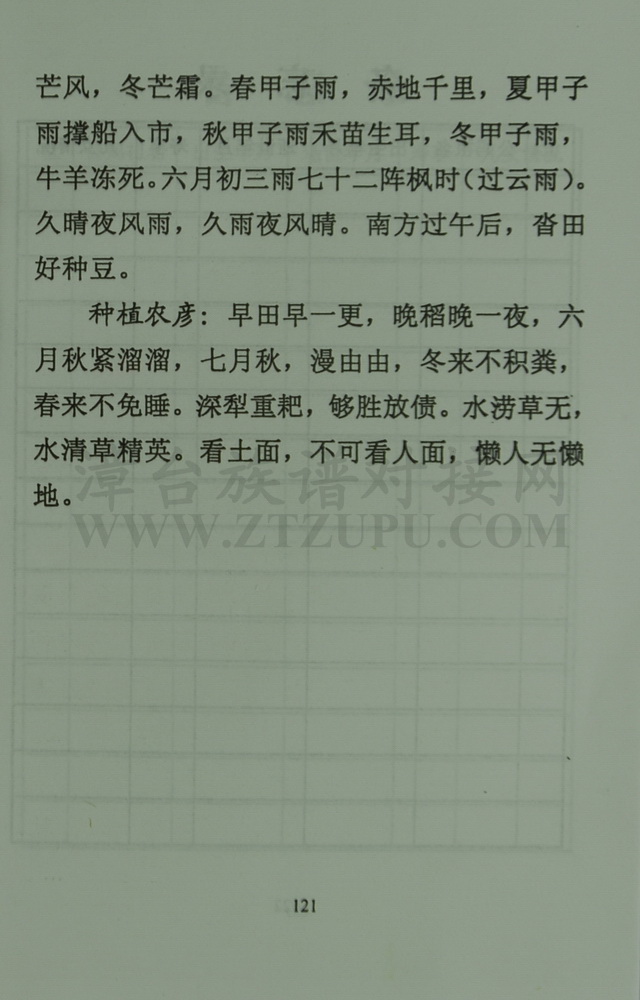 芒风，冬芒霜。春甲子雨，赤地千里，夏甲子
雨撑船入市，秋甲子雨禾苗生耳，冬甲子雨，
牛羊冻死。六月初三雨七十二阵枫时（过云雨）。
久晴夜风雨，久雨夜风晴。南方过午后，沓田
好种豆。
种植农彦：早田早一更，晚稻晚一夜，六
月秋紧溜溜，七月秋，漫由由，冬来不积粪，
春来不免睡。深犁重耙，够胜放债。水涝草无，
水清草精英。看土面，不可看人面，懒人无懒
地。
漳台族谱对接网
WWW.ZTZUPU.COM
121